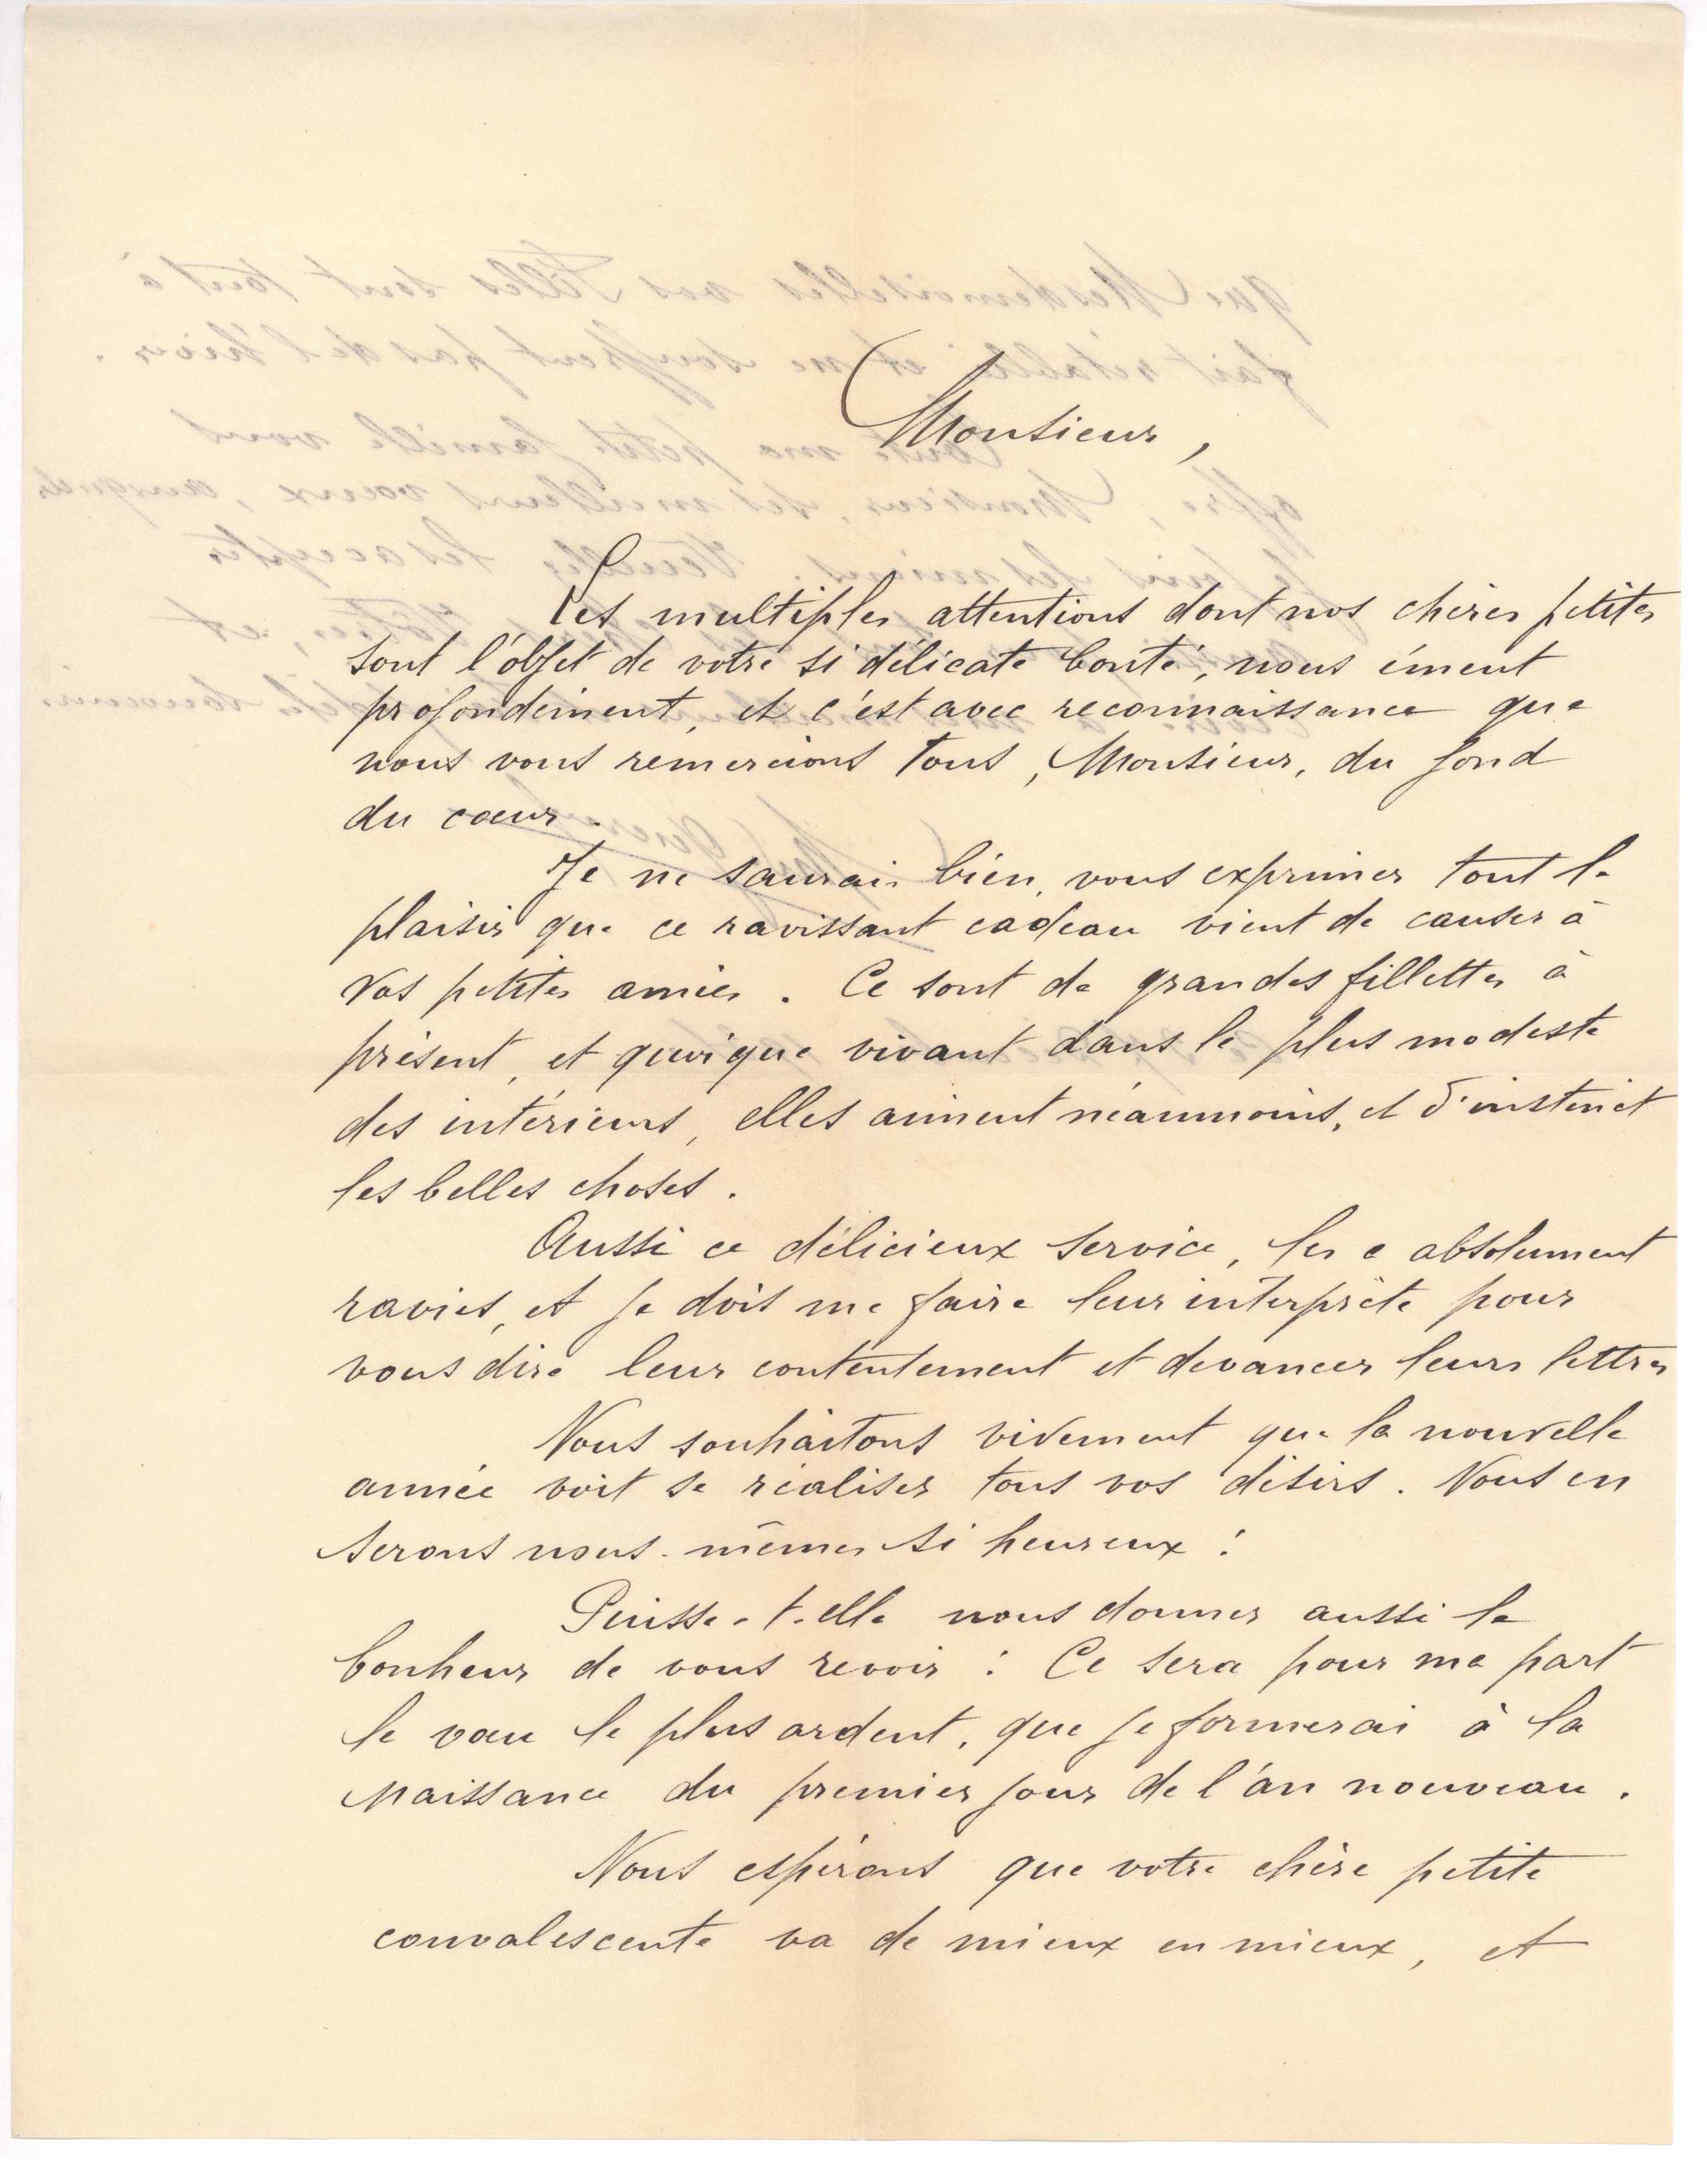 Monsieur,
Les multiples attentions dont nos chères petites
sont l'objet de votre si délicate bonté, nous émeut
profondément, et c'est avec reconnaissance que
nous vous remercions tous, Monsieur, du fond
du cœur.
Je ne saurais bien, vous exprimer tout le
plaisir que ce ravissant cadeau vient de causer à
vos petites amies. Ce sont de grandes fillettes à
présent, et quoique vivant dans le plus modeste
des intérieurs, elles aiment néanmoins, et d'instinct
les belles choses.
Aussi ce délicieux service, les a absolument
ravies, et je dois me faire leur interprète pour
vous dire leur contentement et devancer leurs lettres
Nous souhaitons vivement que la nouvelle
année voit se réaliser tous vos désirs. Nous en
serons nous-mêmes si heureux !
Puisse-t-elle nous donner aussi le
bonheur de vous revoir : Ce sera pour ma part
le vœu le plus ardent, que je formerai à la
naissance du premier jour de l'an nouveau.
Nous espérons que votre chère petite
convalescente va de mieux en mieux, et